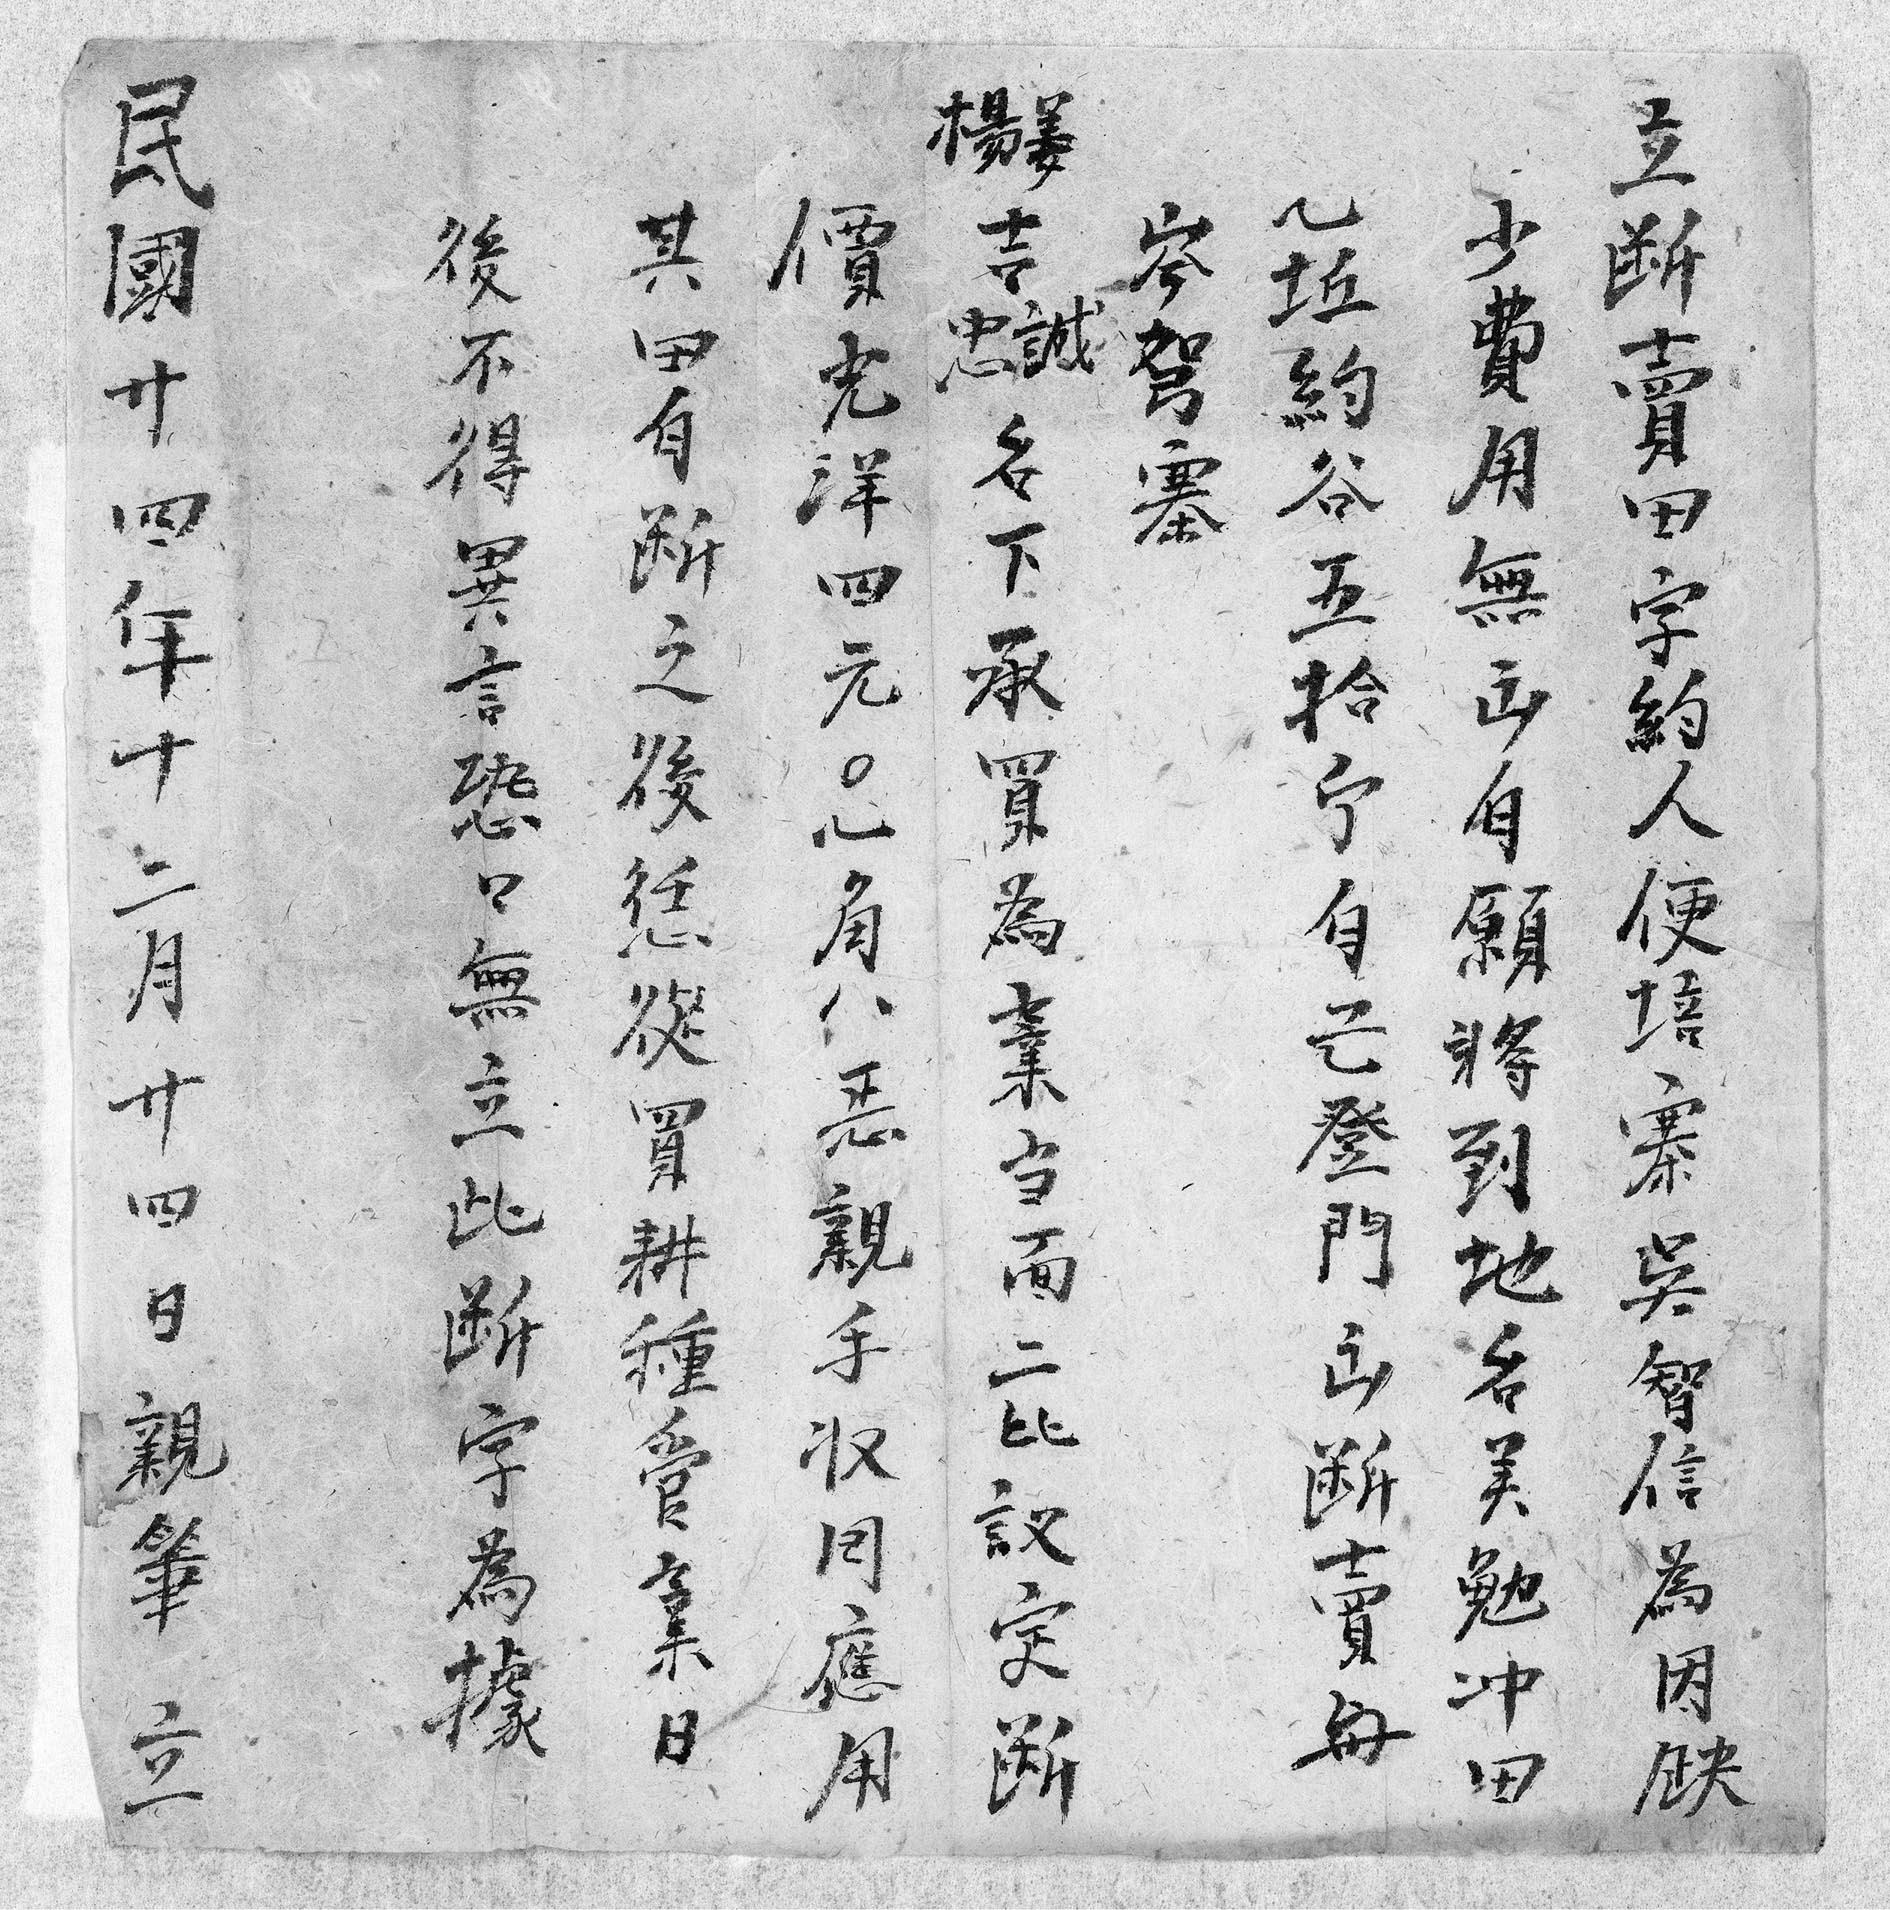 立断賣田字約人便培寨吳智信為因缺
少費用無出自願將到地名美勉冲田
乙坵約谷五拾宁自己登門出断賣與
岑努寨
姜楊吉誠忠名下承買為業当面二比議定断
價光洋四元〇 角八 親手收用應用
其田自断之後恁從買耕種管業日
後不得異言恐口無立此断字為據
民國廿四年十二月廿四日親筆 立